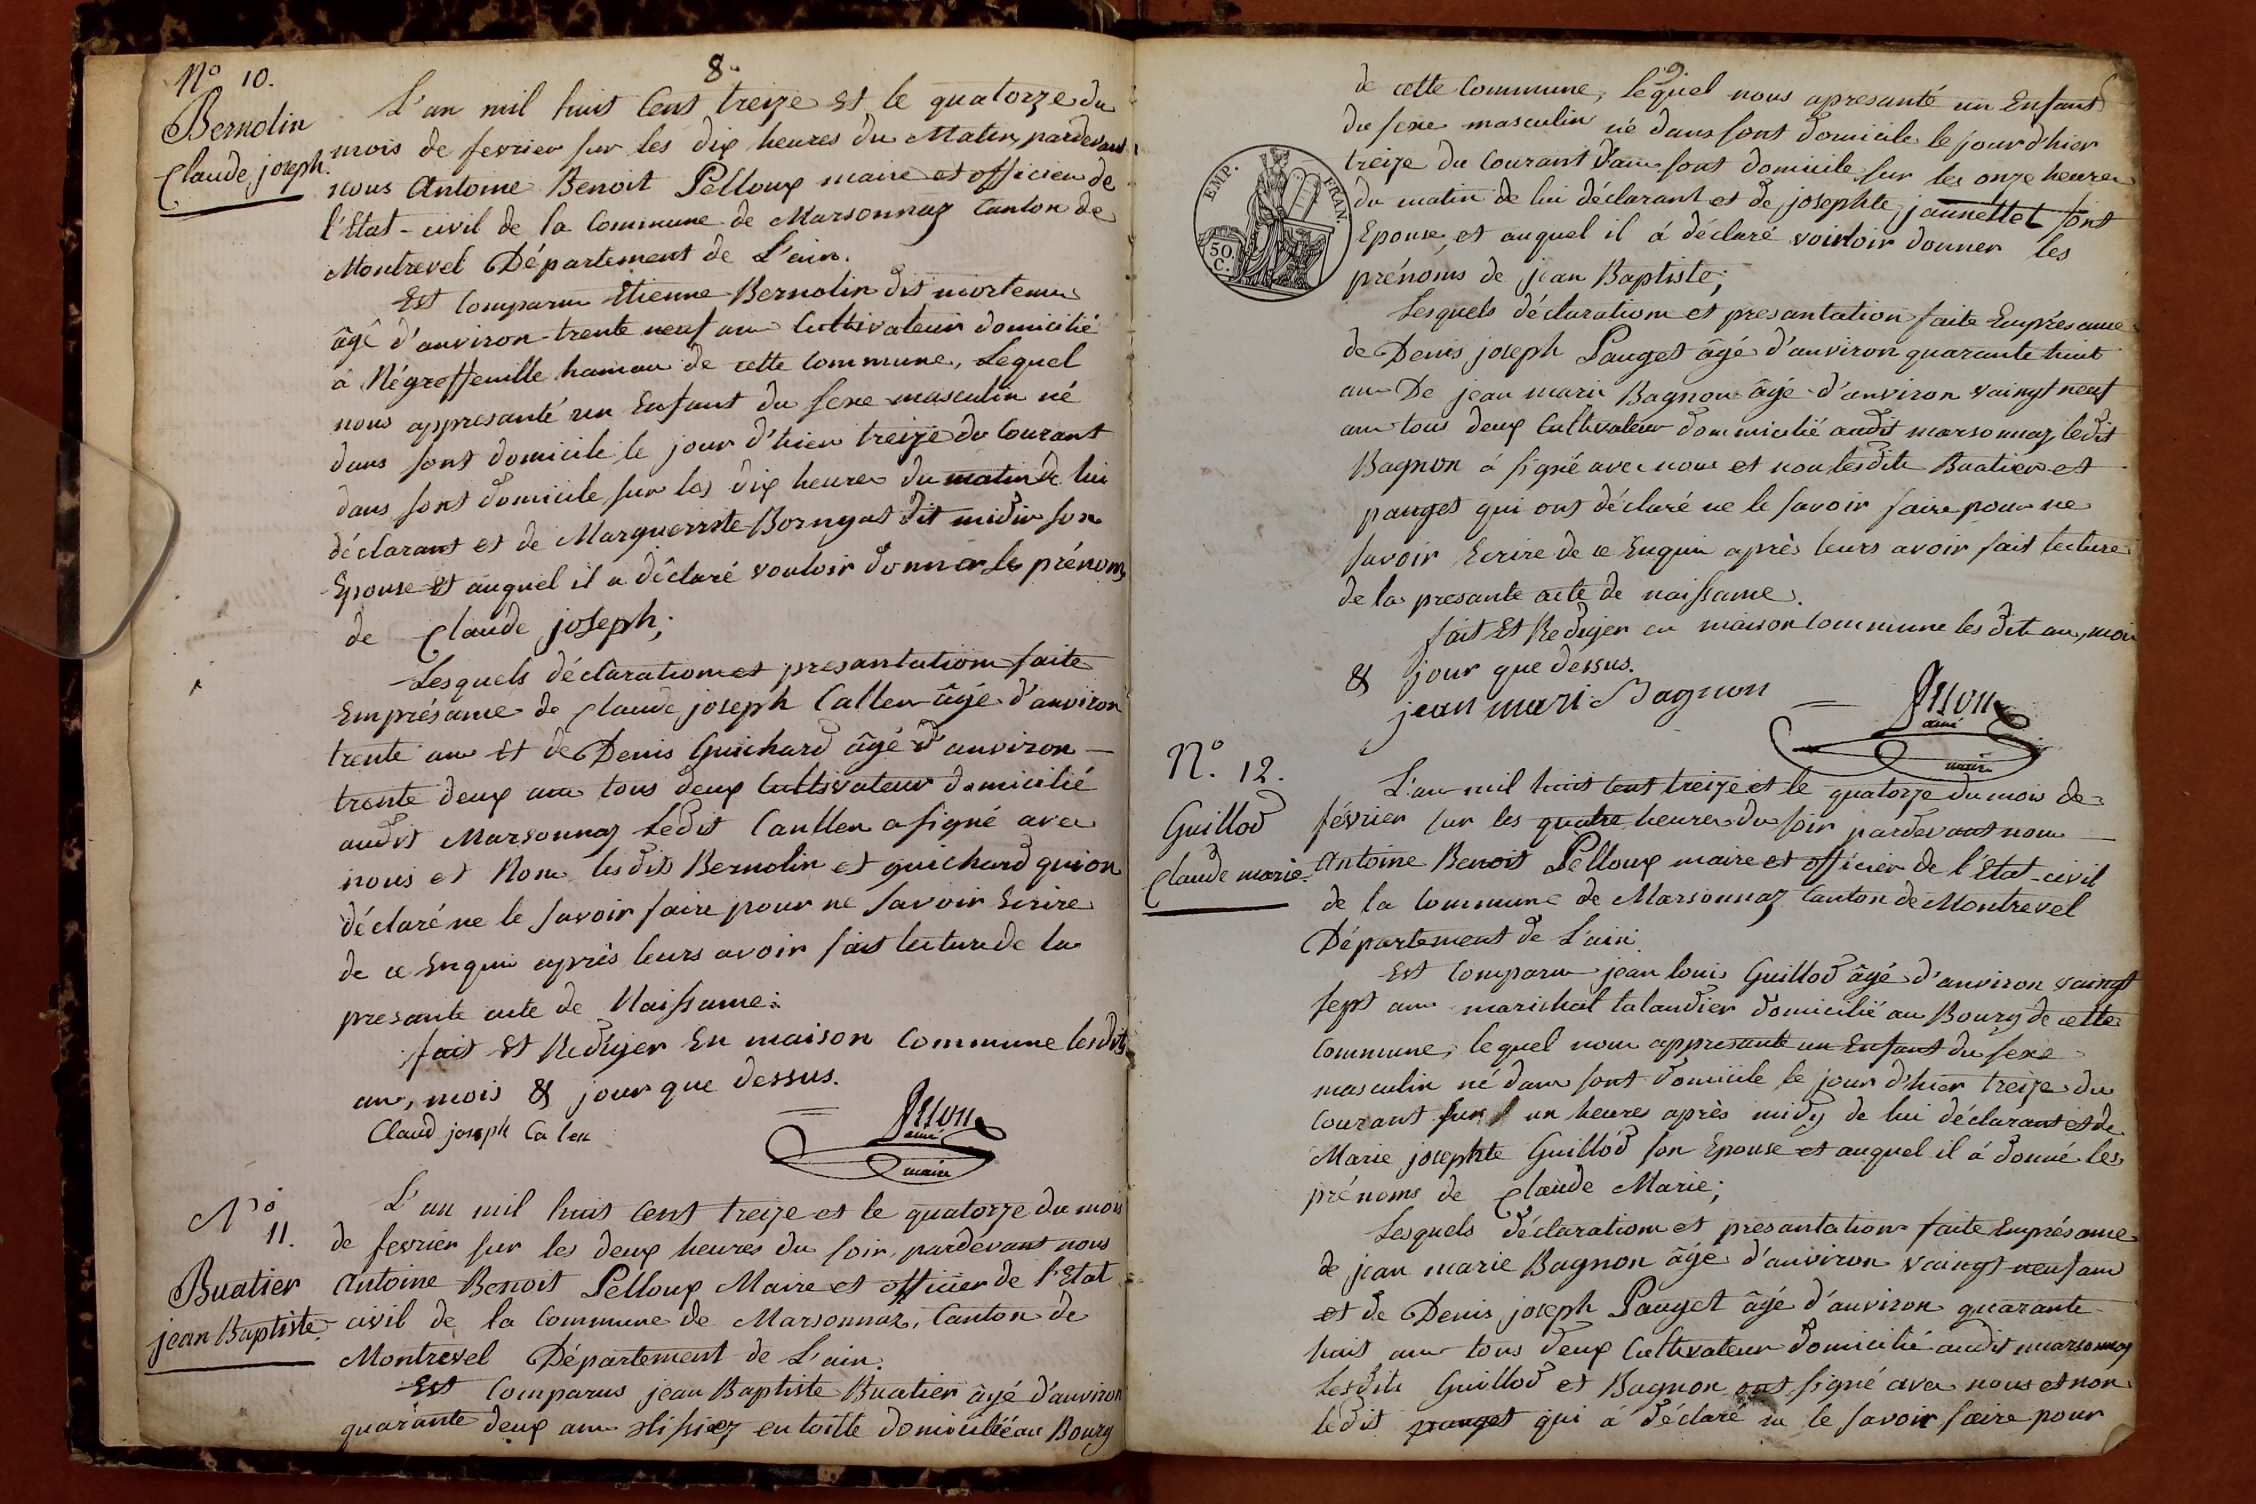 8.
N° 10.
Bernolin
Claude joseph.
L'an mil huit Cent treize Et le quatorze du
mois de fevrier sur les dix heures du Matin, pardevant
nous Antoine Benoit Pelloux maire et officier de
l'Etat-civil de la Commune de Marsonnaz Canton de
Montrevel Département de L'ain.
Est Comparu Etienne Bernolin dit
âgé d'anviron trente neuf ans Cultivateur domicilié
à Négreffeuille hamau de cette Commune, Lequel
nous appresanté un Enfant du sexe masculin né
dans sont domicile le jour d'hier treize du Courant
dans sont domicile sur les dix heures du matin de lui
déclarant et de Marguerrite Bornyat dit midie son
Epouse Et auquel il a déclaré vouloir donner les prénoms
de Claude joseph;
Lesquels déclarations et presantation faite
Emprésame de Claude joseph Callen âgé d'anviron
trente ans Et de Denis Guichard âgé d'anviron
trente deux ans tous deux Cultivateur domicilié
audit Marsonnaz Ledit Caullen a signé avec
nous et Nom lesdits Bernolin et guichard qui on
déclaré ne le savoir faire pour ne savoir Ecrire
de ce Enquis après leurs avoir fait lecture de la
presante acte de Naissame.
fait Et Rediger En maison Commune lesdits
an, mois & jour que dessus.
Claud joseph Ca len
ainé
maire
N°
11.
Buatier
jean Baptiste
L'an mil huit Cent treize et le quatorze du mois
de fevrier sur les deux heures du soir, pardevant nous
Antoine Benoit Pelloux Maire et officier de l'Etat
civil de la Commune de Marsonnaz, Canton de
Montrevel Département de L'ain.
Est Comparus jean Baptiste Buatier âgé d'anviron
quarante deux ans en toille domicilié au Bourg
9
de cette Commune, lequel nous apresanté un Enfant
du sexe masculin né dans sont domicile le jour d'hier
treize du Courant dans sont domicile sur les onze heures
du matin de lui déclarant et de josephte jannettet sont
Epouse, et auquel il á déclaré vouloir donner les
prénoms de jean Baptiste;
EMP. FRAN.
50.
C.
Lesquels déclarations et presantation faite Emprésame
de Denis joseph Pauget âgé d'anviron quarante huit
ans De jean marie Bagnon âgé d'anviron vaingt neuf
ans tous deux Cultivateur dommicilié audit marsonnaz, ledit
Bagnon á signé avec nous et non lesdits Buatier et
pauget qui ont déclaré ne le savoir faire pour ne
savoir Ecrire de ce Enquis après leurs avoir fait lecture
de la presante acte de naissame.
fait Et Rediger en maison Commune lesdits an, mois
& jour que dessus.
jean mari Bagnon
ainé
maire
N°. 12.
Guillod
Claude marie.
L'an mil huit Cent treize et le quatorze du mois de
février sur les quatre heures du soir pardevant nous
Antoine Benoit Pelloux maire et officier de l'Etat-civil
de la Commune de Marsonnaz Canton de Montrevel
Département de L'ain.
Est Comparu jean louis Guillod âgé d'anviron vaingt
sept ans marichal talandier domicilié au Bourg de cette
Commune, lequel nous appresanté un Enfant du sexe
masculin né dans sont domicile le jour d'hier treize du
Courant sur un heures après midy de lui déclarant et de
Marie josephte Guillod son Epouse et auquel il á donné les
prénoms de Claude Marie;
Lesquels déclarations et presantation faite Emprésame
de jean marie Bagnon âgé d'anviron vaingt neuf ans
et de Denis joseph Pauget âgé d'anviron quarante
huit ans tous deux Cultivateur domicilié audit marsonnaz
Lesdits Guillod et Bagnon ont signé avec nous et non
ledit pauget qui á déclaré ne le savoir faire pour